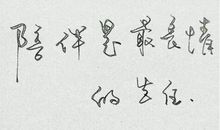 陪伴是最长情
的告白.